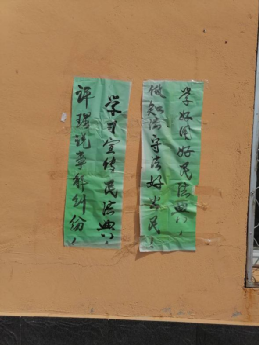 学好用好民法典!
做知法守法好公民!
学习宣传民法典!
评理说事解纠纷!